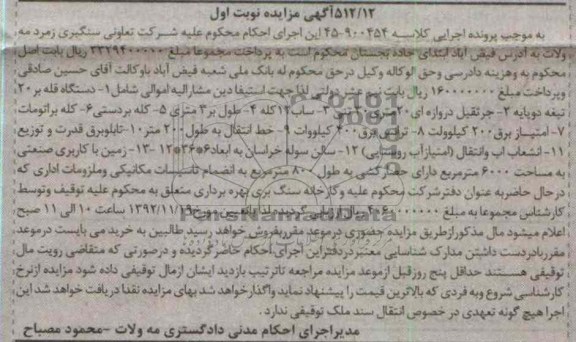 ۵۱۲/۱۲آگهی مزایده نوبت اول
به موجب پرونده اجرایی کلاسه ۹۰۰۴۵۴-۴۵ این اجرای احکام محکوم علیه شرکت تعاونی سنگبری زمرد مه
ولات به آدرس فیض آباد ابتدای جاده بجستان محکوم است به پرداخت مجموعا مبلغ ۳۳۲۹۴۰۰۰۰۰ ریال بابت اصل
محکوم به وهزینه دادرسی وحق الوکاله وکیل درحق محکوم له بانک ملی شعبه فیض آباد باوکالت آقای حسین صادقی
وپرداخت مبلغ ۱۶۰۰۰۰۰۰۰ ریال بابت نیم عشر دولتی لذا جهت استیفا دین مشارالیه اموالی شامل ۱- دستگاه قله بر ۲۰
تیغه دوپایه ۲- جرثقیل دروازه ای ۲۰ ۳- ساب ۱۲ کله ۴- طول بر ۳ متری ۵- کله بردستی ۶- کله براتومات
۷- امتیاز برق ۲۰۰ کیلوولت ۸- ترانس برق ۴۰۰ کیلووات ۹- خط انتقال به طول ۲۰۰ متر ۱۰- تابلوبرق قدرت و توزیع
۱۱- انشعاب اب وانتقال (امتیازآب روستایی) ۱۲- سالن سوله خراسان به ابعاد ۶*۳۶*۱۲ ۱۳- زمین با کاربری صنعتی
به مساحت ۶۰۰۰ مترمربع دارای حصارکشی به طول ۸۰۰ مترمربع به انضمام تاسیسات مکانیکی وملزومات اداری که
درحال حاضر به عنوان دفترشرکت محکوم علیه و کارخانه سنگ بری بهره برداری متعلق به محکوم علیه توقیف وتوسط
کارشناس مجموعا به مبلغ ریال ۱۳۹۲/۱۱/۱۹ ساعت ۱۰ الی ۱۱ صبح
اعلام میشود مال مذکورازطریق مزایده حضوری درموعد مقرربفروش خواهد رسید طالبین به خرید می بایست درموعد
مقرربادردست داشتن مدارک شناسایی معتبردردفتراین اجرای احکام حاضرگردیده و درصورتی که متقاضی رویت مال
توقیفی هستند حداقل پنج روزقبل ازموعد مزایده مراجعه تاترتیب بازدید ایشان ازمال توقیفی داده شود مزایده ازنرخ
کارشناسی شروع وبه فردی که بالاترین قیمت را پیشنهاد نماید واگذارخواهد شد بهای مزایده نقدا دریافت خواهد شد این
اجرا هیچ گونه تعهدی در خصوص انتقال سند ملک توقیفی ندارد.
مدیراجرای احکام مدنی دادگستری مه ولات -محمود مصباح